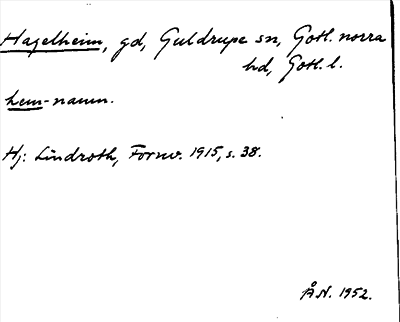 Hagelheim, gd, Guldrupe sn, Gotl. norra
hd, Gotl. l.
hem-namn.
Hj: Lindroth, Fornv. 1915, s. 38.
Å.N. 1952.